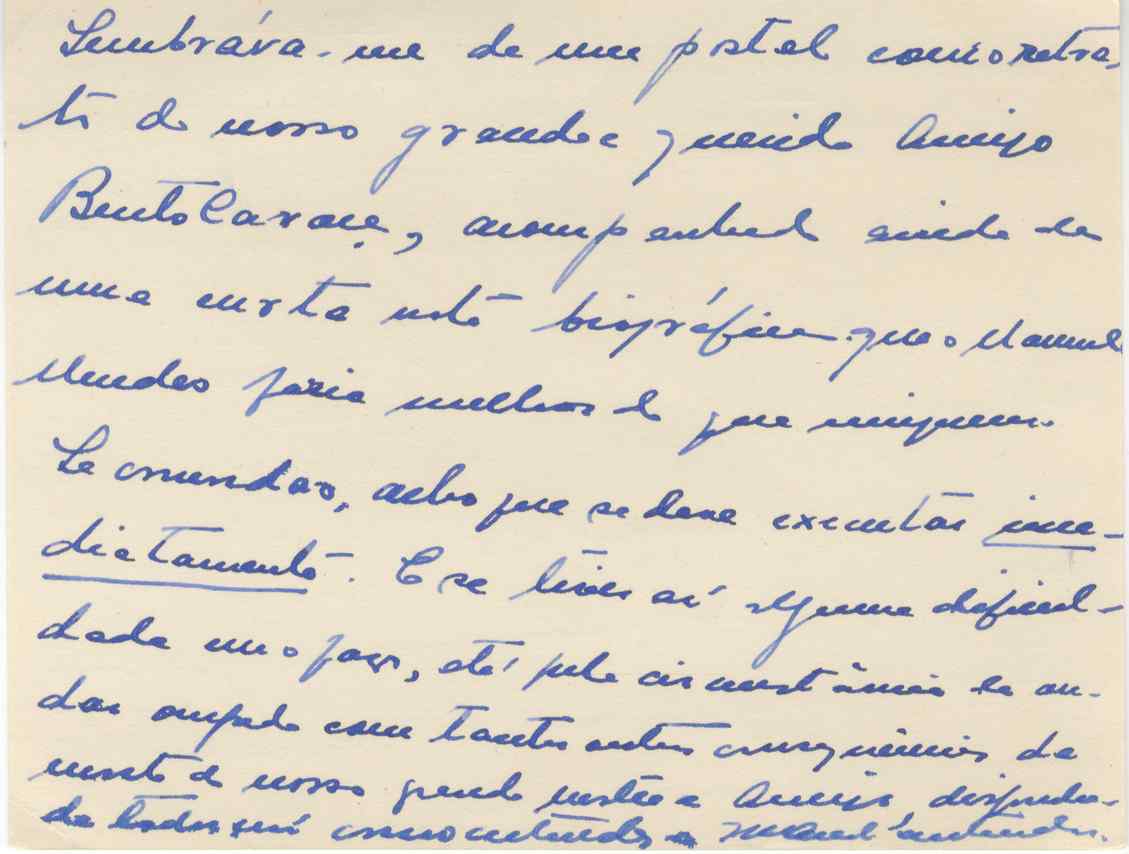 Lembrava-me de um postal com o retra-
to do nosso grande e querido Amigo
Bento Caraça, acompanhado ainda de
uma curta nota biográfica que o Manuel
Mendes faria melhor do que ninguem.
Se concordar, acho que se deve executar ime-
diatamente. E se tiver aí alguma dificul-
dade eu o faço, até pela circunstância de an-
dar ocupado com tantas outras consequências da
morte do nosso grande mestre e Amigo,
de todos